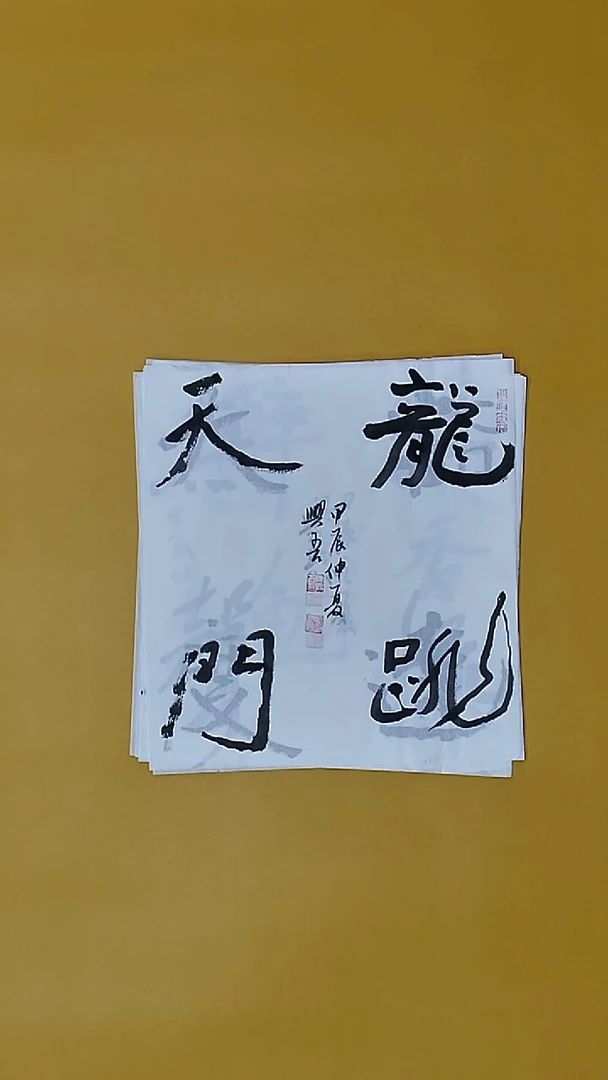 龍跳
天門
甲辰仲夏
興吾